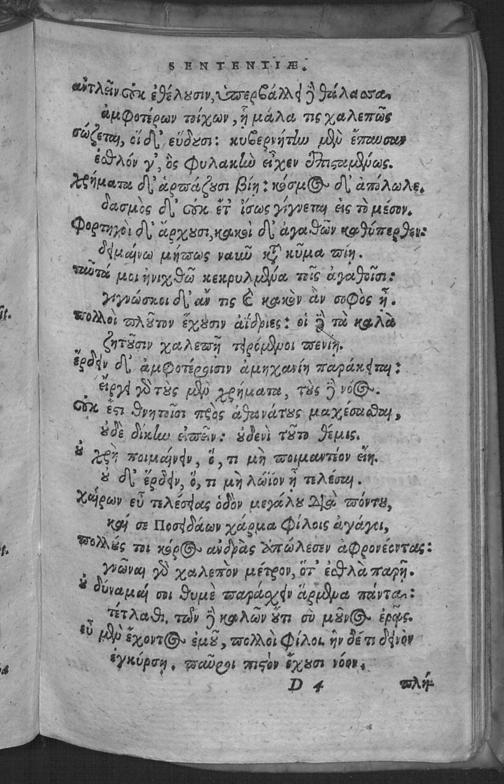 SENTENTIÆ.
ἀντλεῖν οὐκ ἐθέλουσιν, ὑπερβάλλει δὲ θάλασσα
ἀμφοτέρων τοίχων, ἦ μάλα τις χαλεπῶς
σώζεται, οἱ δ' εὕδουσι: κυβερνήτην μὲν ἔπαυσαν
ἐσθλόν γ', ὃς φυλακὴν εἶχεν ἐπισταμένως.
χρήματα δ' ἁρπάζουσι βίῃ: κόσμος δ' ἀπόλωλε.
δασμὸς δ' οὐκ ἔτ' ἴσως γίγνεται εἰς τὸ μέσον.
Φορτηγοὶ δ' ἄρχουσι, κακοὶ δ' ἀγαθῶν καθύπερθεν:
δειμαίνω μήπως ναῦν κατὰ κῦμα πίῃ.
ταῦτά μοι ἠνίχθω κεκρυμμένα τοῖς ἀγαθοῖσι:
γιγνώσκοι δ' ἄν τις καὶ κακὸν ἂν σοφὸς ᾖ.
πολλοὶ πλοῦτον ἔχουσιν ἀΐδριες: οἱ δὲ τὰ καλὰ
ζητοῦσιν χαλεπῇ τειρόμενοι πενίῃ.
ἔρδειν δ' ἀμφοτέροισιν ἀμηχανίη παράκειται:
εἴργει γὰρ τοὺς μὲν χρήματα, τοὺς δὲ νόος.
οὐκ ἔστι θνητοῖσι πρὸς ἀθανάτους μαχέσασθαι,
οὐδὲ δίκην εἰπεῖν: οὐδενὶ τοῦτο θέμις.
οὐ χρὴ ποιμαίνειν, ὅ, τι μὴ ποιμαντέον εἴη.
οὐ δ' ἔρδειν, ὅ, τι μὴ λώϊον ᾖ τελέσαι.
χαίρων εὖ τελέσειας ὁδὸν μεγάλου διὰ πόντου,
καί σε Ποσειδάων χάρμα φίλοις ἀγάγοι,
πολλούς τοι κόρος ἄνδρας ἀπώλεσεν ἀφρονέοντας:
γνῶναι γὰρ χαλεπὸν μέτρον, ὅτ' ἐσθλὰ παρῇ.
οὐ δύναμαί σοι θυμὲ παρασχεῖν ἄρμενα πάντα:
τέτλαθι, τῶν δὲ καλῶν οὔτι σὺ μοῦνος ἐρᾷς.
εὖ μὲν ἔχοντος ἐμοῦ, πολλοὶ φίλοι. ἢν δέ τι δεινὸν
ἐγκύρσῃ, παῦροι πιστὸν ἔχουσι νόον.
D 4 πλή